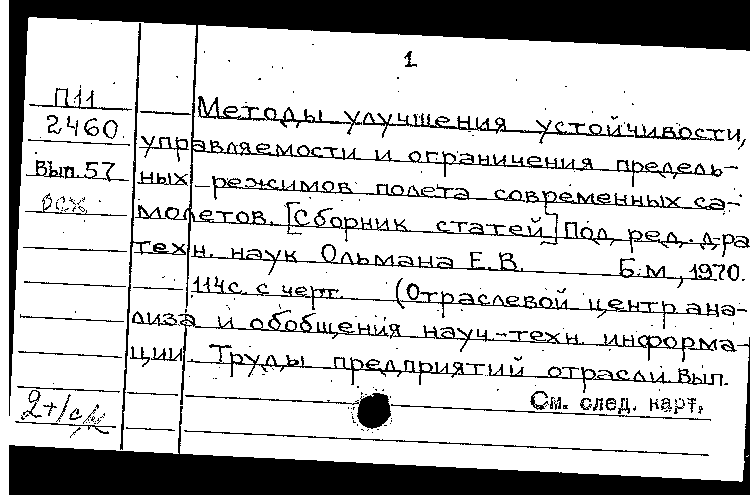 1
П11
2460
Вып. 57
осх
Методы улучшения устойчивости,
управляемости и ограничения предель-
ных режимов полета современных са-
молетов. [Сборник статей] Под ред. д-ра
техн. наук Ольмана Е.В. Б.м., 1970.
114с. с черт. (Отраслевой центр ана-
лиза и обобщения науч.-техн. информа-
ции. Труды предприятий отрасли. Вып.
См. след. карт.